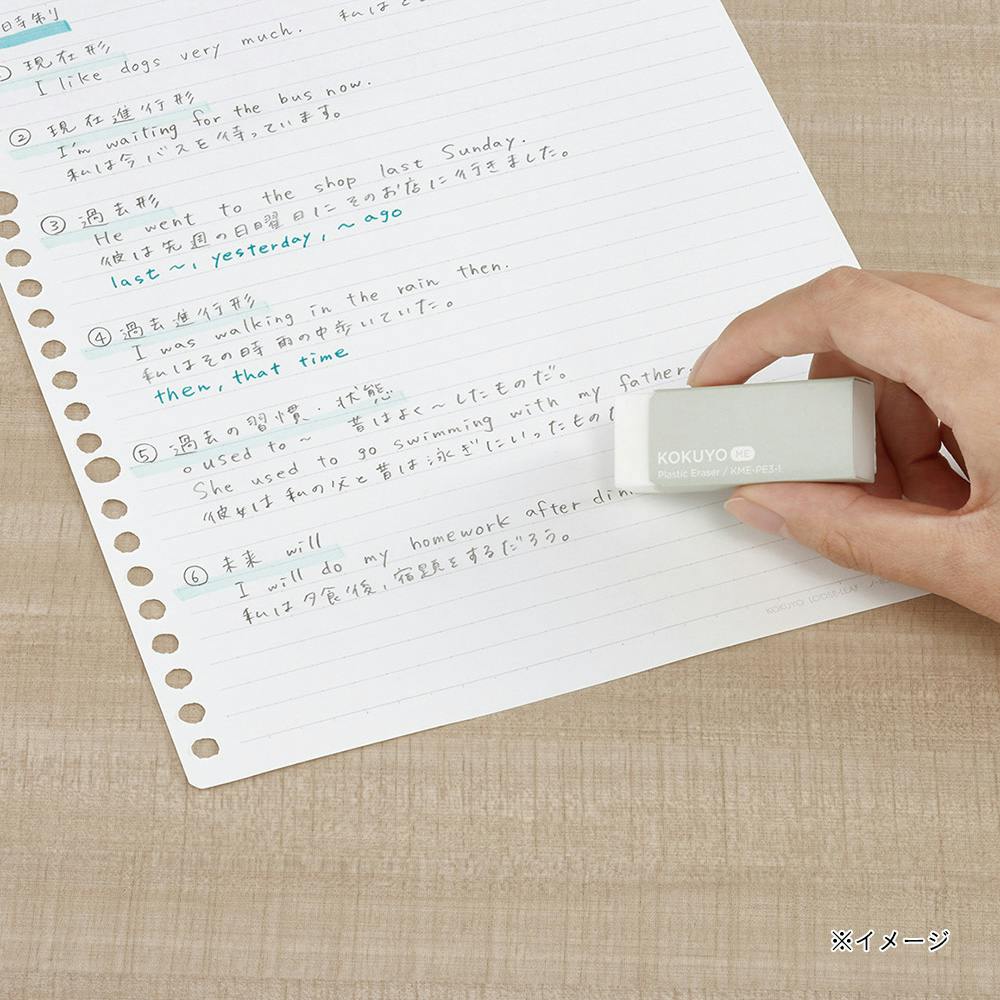 時制
① 現在形
I like dogs very much. 私は
② 現在進行形
I'm waiting for the bus now.
私は今バスを待っています。
③ 過去形
He went to the shop last Sunday.
彼は先週の日曜日にそのお店に行きました。
last ～, yesterday, ～ ago
④ 過去進行形
I was walking in the rain then.
私はその時雨の中歩いていた。
then, that time
⑤ 過去の習慣・状態
○used to ～ 昔はよく～したものだ。
She used to go swimming with my father.
彼女は私の父と昔は泳ぎにいったもの
⑥ 未来 will
I will do my homework after
私は夕食後、宿題をするだろう。
KOKUYO ME
Plastic Eraser / KME-PE3-1
KOKUYO LOOSE-LEAF
※イメージ